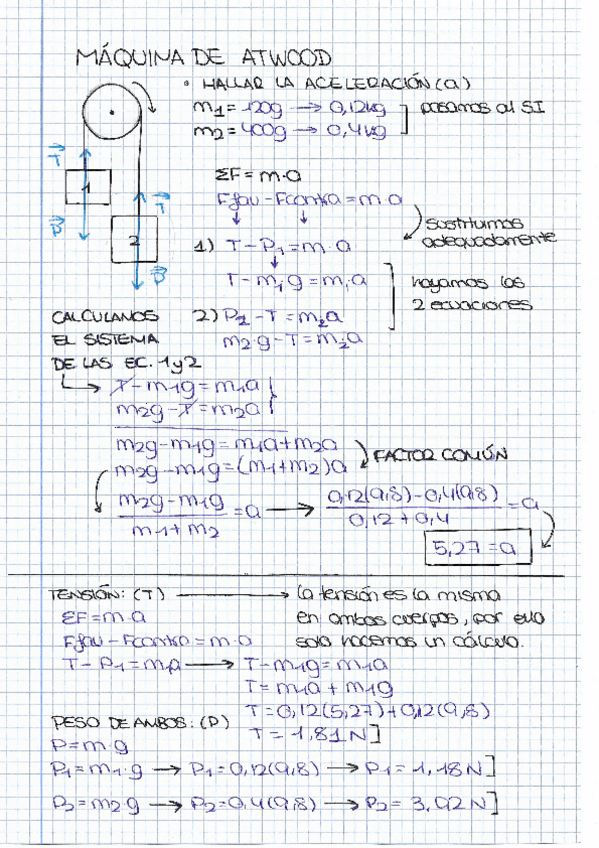 MÁQUINA DE ATWOOD
• HALLAR LA ACELERACIÓN (a)
m1 = 120g → 0,12kg
m2 = 400g → 0,4kg
pasamos al SI
T
1
P
T
2
P
ΣF = m·a
Ffav - Fcontra = m·a
Sustituimos
adecuadamente
1) T - P1 = m·a
T - m1g = m1a
hayamos las
2 ecuaciones
2) P2 - T = m2a
m2·g - T = m2a
CALCULANOS
EL SISTEMA
DE LAS EC. 1 y 2
T - m1g = m1a
m2g - T = m2a
m2g - m1g = m1a + m2a
FACTOR COMÚN
m2g - m1g = (m1 + m2)a
m2g - m1g / m1 + m2 = a → 0,12(9,8) - 0,4(9,8) / 0,12 + 0,4 = a
5,27 = a
TENSIÓN: (T) → La tensión es la misma
en ambos cuerpos, por ello
solo hacemos un cálculo.
ΣF = m·a
Ffav - Fcontra = m·a
T - P1 = m1a → T - m1g = m1a
T = m1a + m1g
T = 0,12(5,27) + 0,12(9,8)
T = 1,81 N]
PESO DE AMBOS: (P)
P = m·g
P1 = m1·g → P1 = 0,12(9,8) → P1 = 1,18 N]
P2 = m2·g → P2 = 0,4(9,8) → P2 = 3,92 N]